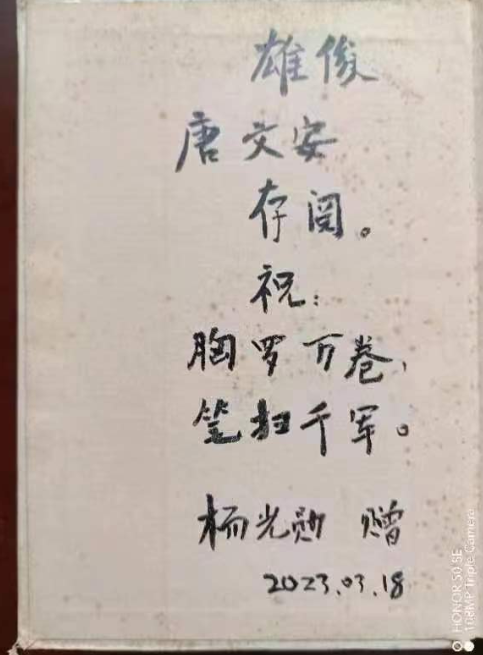 雄俊
唐文安
存阅。
祝:
胸罗万卷,
笔扫千军。
杨光勋 赠
2023.03.18
HONOR 50 SE
108MP Triple Camera